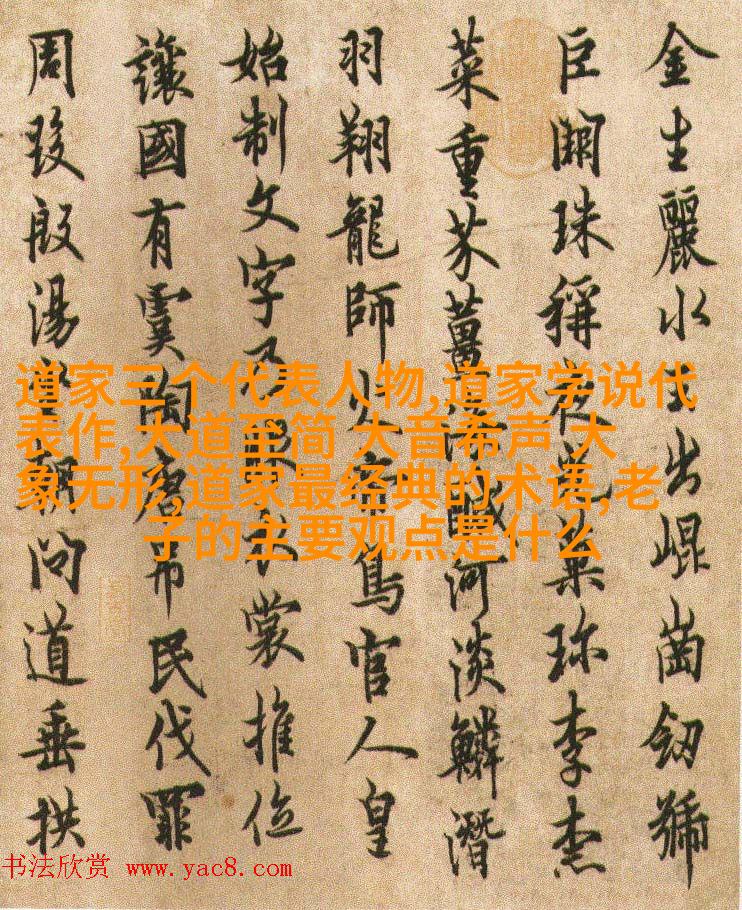 金生麗水玉出崐崗劒號
巨闕珠稱夜光菓珎李柰
菜重芥薑海醎河淡鱗潛
羽翔龍師火帝鳥官人皇
始制文字乃服衣裳推位
讓國有虞陶唐弔民伐罪
周發殷湯坐朝問道垂拱
道家三个代表人物,道家学说代
表作,大道至简 大音希声 大
象无形,道家最经典的术语,老
子的主要观点是什么
书法欣赏 www.yac8.com